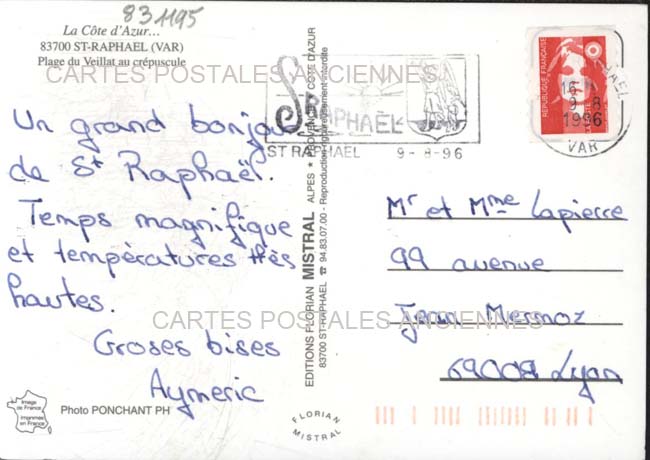 831195
La Côte d'Azur...
83700 ST-RAPHAEL (VAR)
Plage du Veillat au crépuscule
CARTES POSTALES ANCIENNES
Un grand bonjour
de St Raphaël.
Temps magnifique
et températures très
hautes.
Groses bises
Aymeric
Image
de France
Imprimée
en France
Photo PONCHANT PH
EDITIONS FLORIAN MISTRAL ALPES * PROVENCE * COTE D'AZUR
83700 ST-RAPHAEL ☎ 94.83.07.00 - Reproduction rigoureusement interdite
FLORIAN
MISTRAL
ST RAPHAEL
ST RAPHAEL 9-8-96
REPUBLIQUE FRANÇAISE
16
9-8
1996
VAR
Mr et Mme Lapierre
99 avenue
Jean Mermoz
69008 Lyon
CARTES POSTALES ANCIENNES